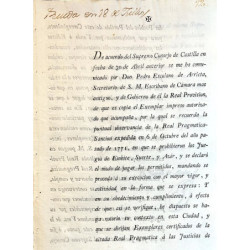 De acuerdo del Supremo Consejo de Castilla en
fecha de 30 de Abril anterior se me ha comu-
nicado por Don Pedro Escolano de Arrieta,
Secretario de S. M. Escribano de Cámara mas
antiguo, y de Gobierno de él la Real Provision,
de que se copia el Exemplar impreso autoriza-
do que acompaño, por la qual se recuerda la
puntual observancia de la Real Pragmatica-
Sancion expedida en 6 de Octubre del año pa-
sado de 1771, en que se prohibieron los Jue-
gos de Embite, Suerte, y Azar, y se declaró
el modo de jugar los permitidos, mandando se
proceda á su execucion con el mayor vigor, y
actividad en la forma que se expresa: Y
en su obedecimiento y cumplimiento, á efecto
de que asi se verifique, he dispuesto se ha-
ga notorio en esta Ciudad, y
que se dirijan Exemplares certificados de la
citada Real Pragmática á las Justicias de